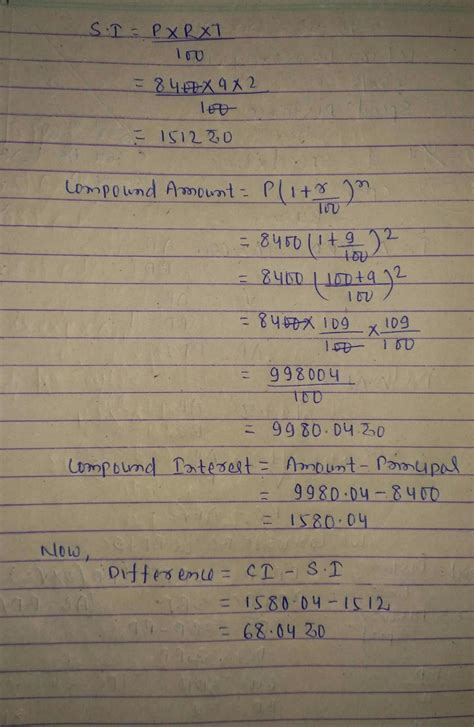 S.I = P×R×T
100
= 8400×9×2
100
= 1512 रु०
Compound Amount = P(1+r/100)^n
= 8400(1+9/100)^2
= 8400(100+9/100)^2
= 8400×109/100×109/100
= 998004
100
= 9980.04 रु०
Compound Interest = Amount-Principal
= 9980.04-8400
= 1580.04
Now,
Difference = CI - S.I
= 1580.04-1512
= 68.04 रु०